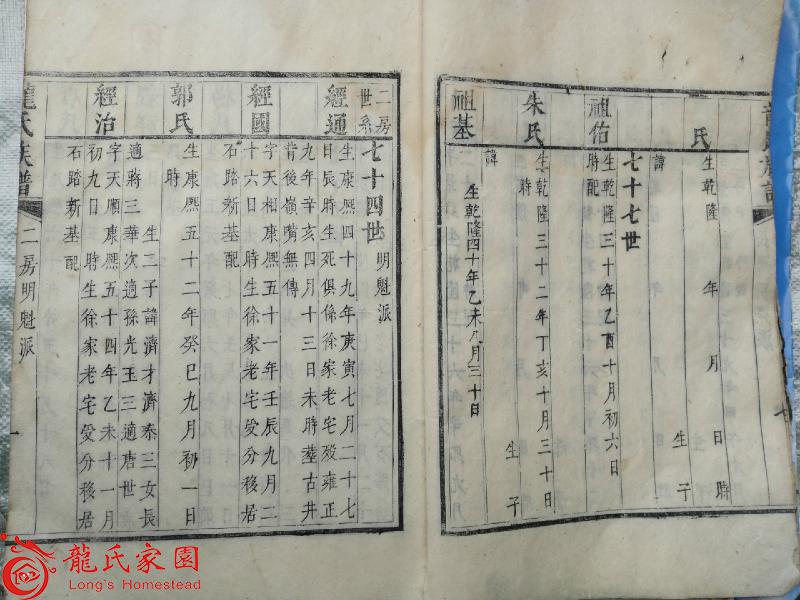 氏
生乾隆 年 月 日 時
諱 生子
七十七世
祖佑
生乾隆三十年乙酉十月初六日
時配
朱氏
生乾隆三十二年丁亥十月三十日
時 生子
諱
祖基
生乾隆四十年乙未八月三十日
二房世系
七十四世 明魁派
經通
生康熙四十九年庚寅七月二十七
日辰時生死俱係徐家老宅歿雍正
九年辛亥四月十三日未時塟古井
背後嶺嘴無傳
經國
字天相康熙五十一年壬辰九月二
十六日 時生徐家老宅受分移居
石踏新基配
郭氏
生康熙五十二年癸巳九月初一日
時
生二子諱濟才濟泰三女長
適蔣三華次適孫光玉三適唐世
經治
字天順康熙五十四年乙未十一月
初九日 時生徐家老宅受分移居
石踏新基配
龍氏族譜
二房明魁派
一
龍氏家園
Long's Homestead